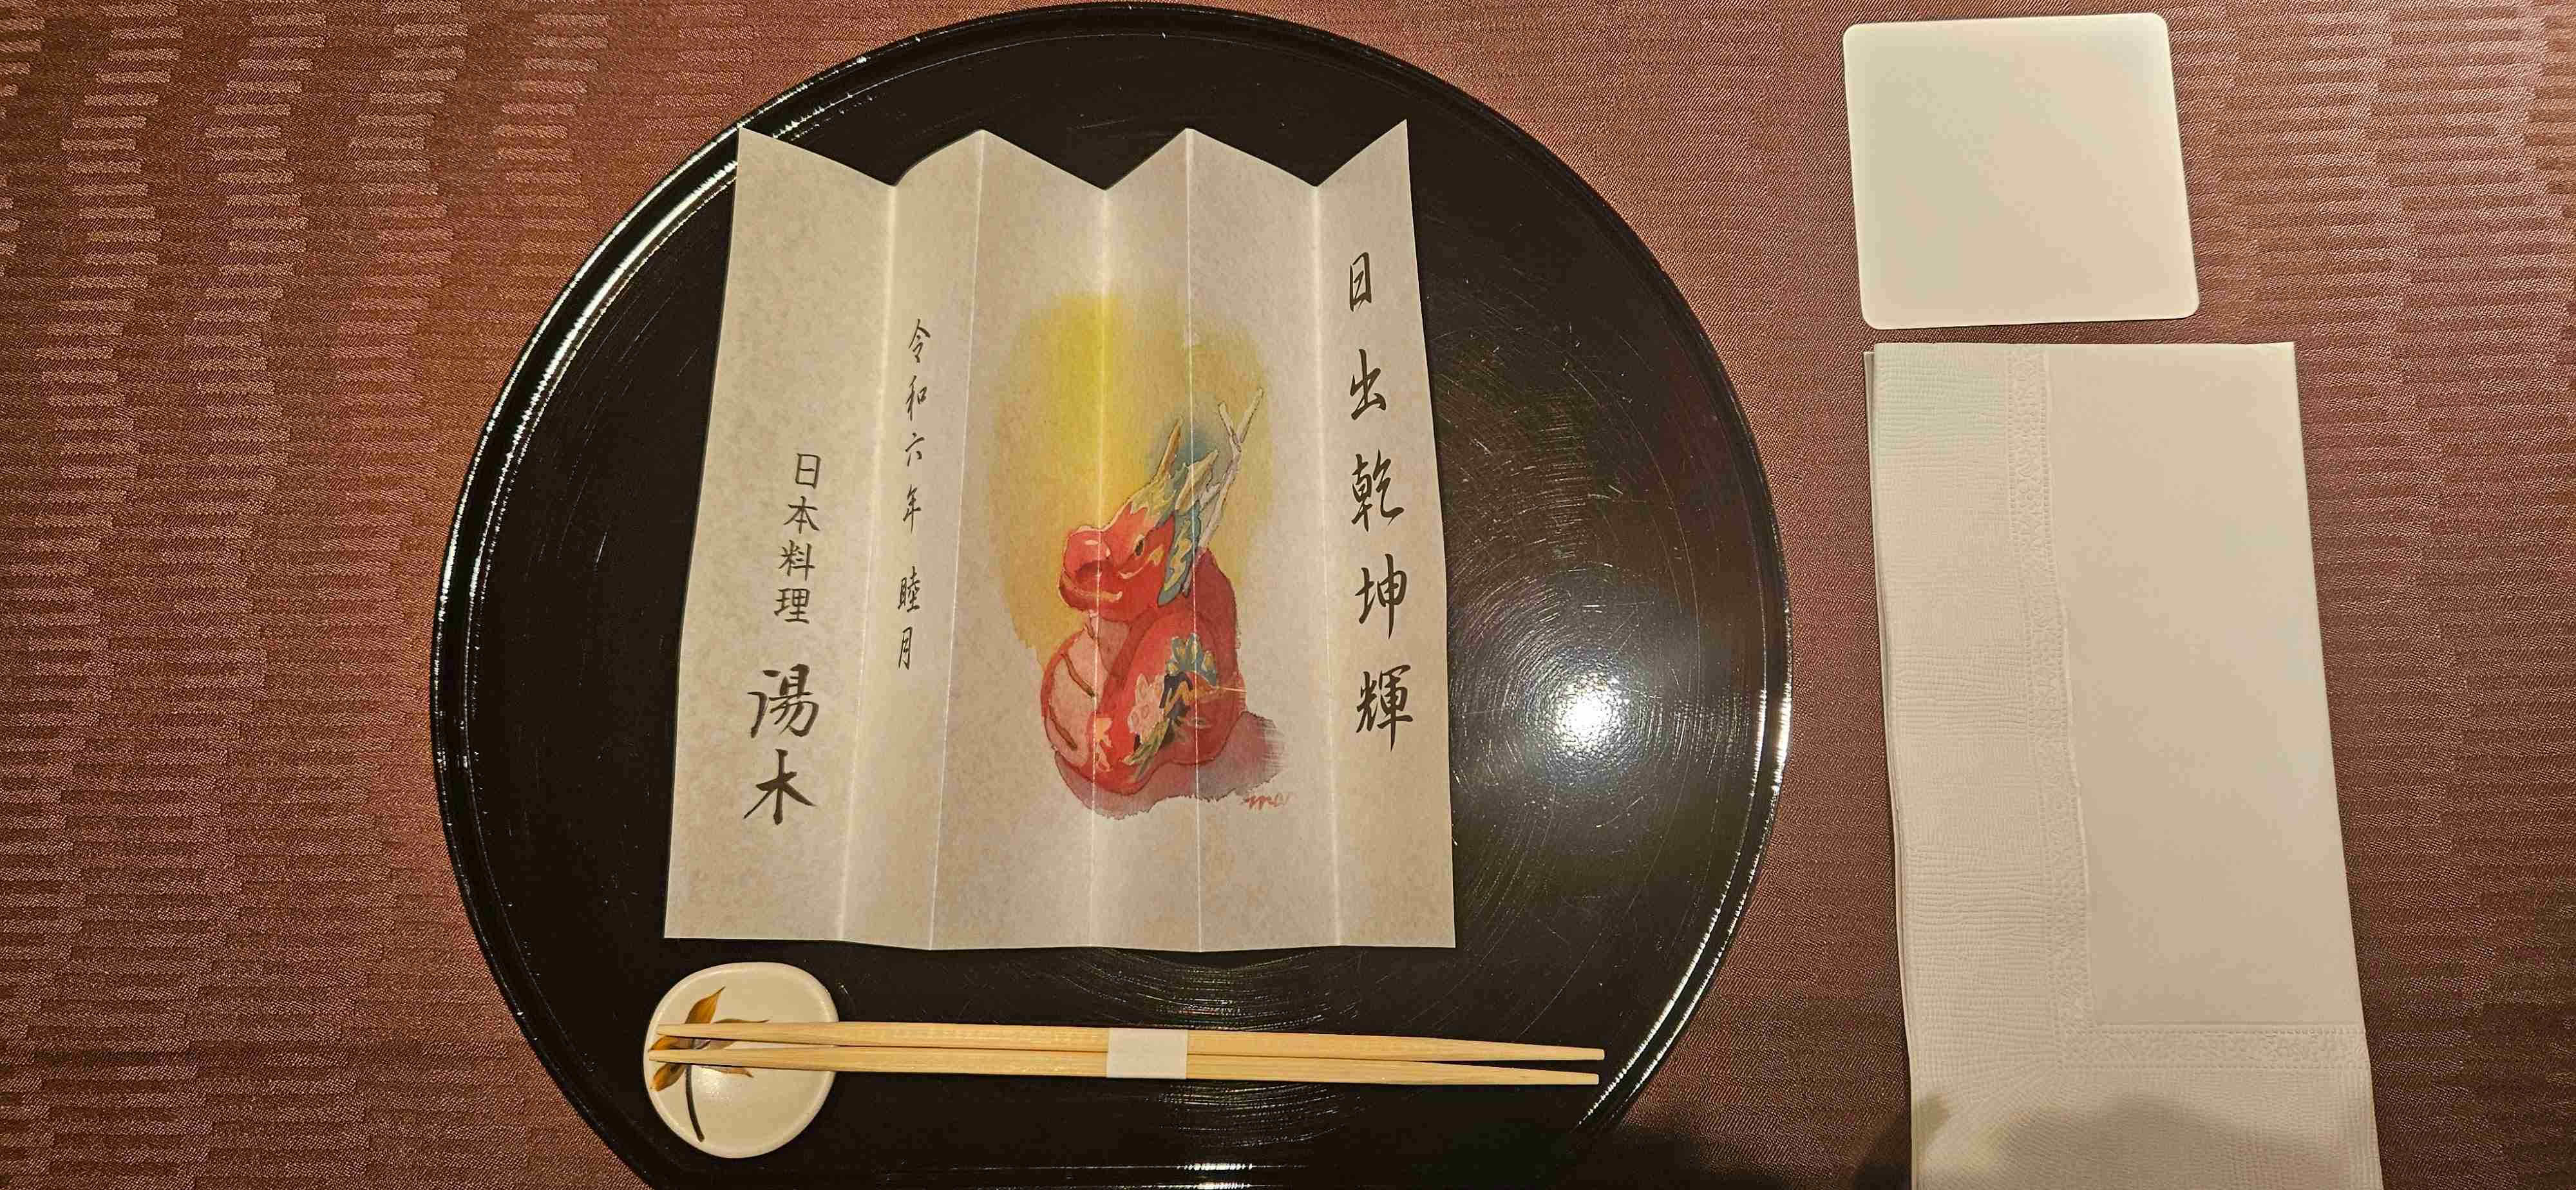 日出乾坤輝
令和六年 睦月
日本料理 湯木